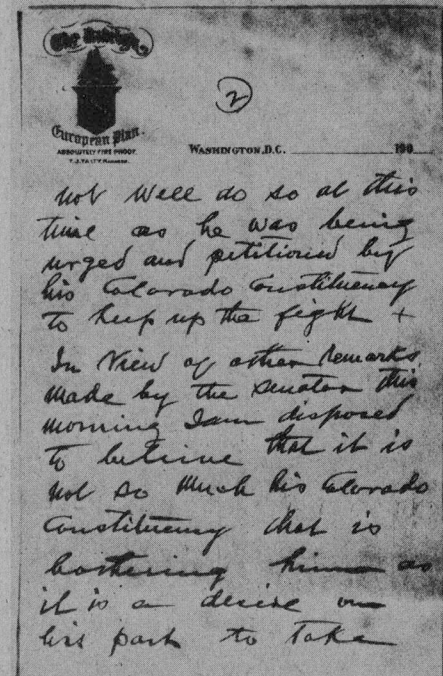 The Raleigh,
European Plan.
ABSOLUTELY FIRE PROOF.
T. J. TALTY, MANAGER.
2
WASHINGTON, D.C. 190
not well do so at this
time as he was being
urged and petitioned by
his Colorado Constituency
to keep up the fight +
In View of other remarks
made by the Senator this
morning I am disposed
to believe that it is
not so much his Colorado
Constituency that is
bothering him as
it is a desire on
his part to take